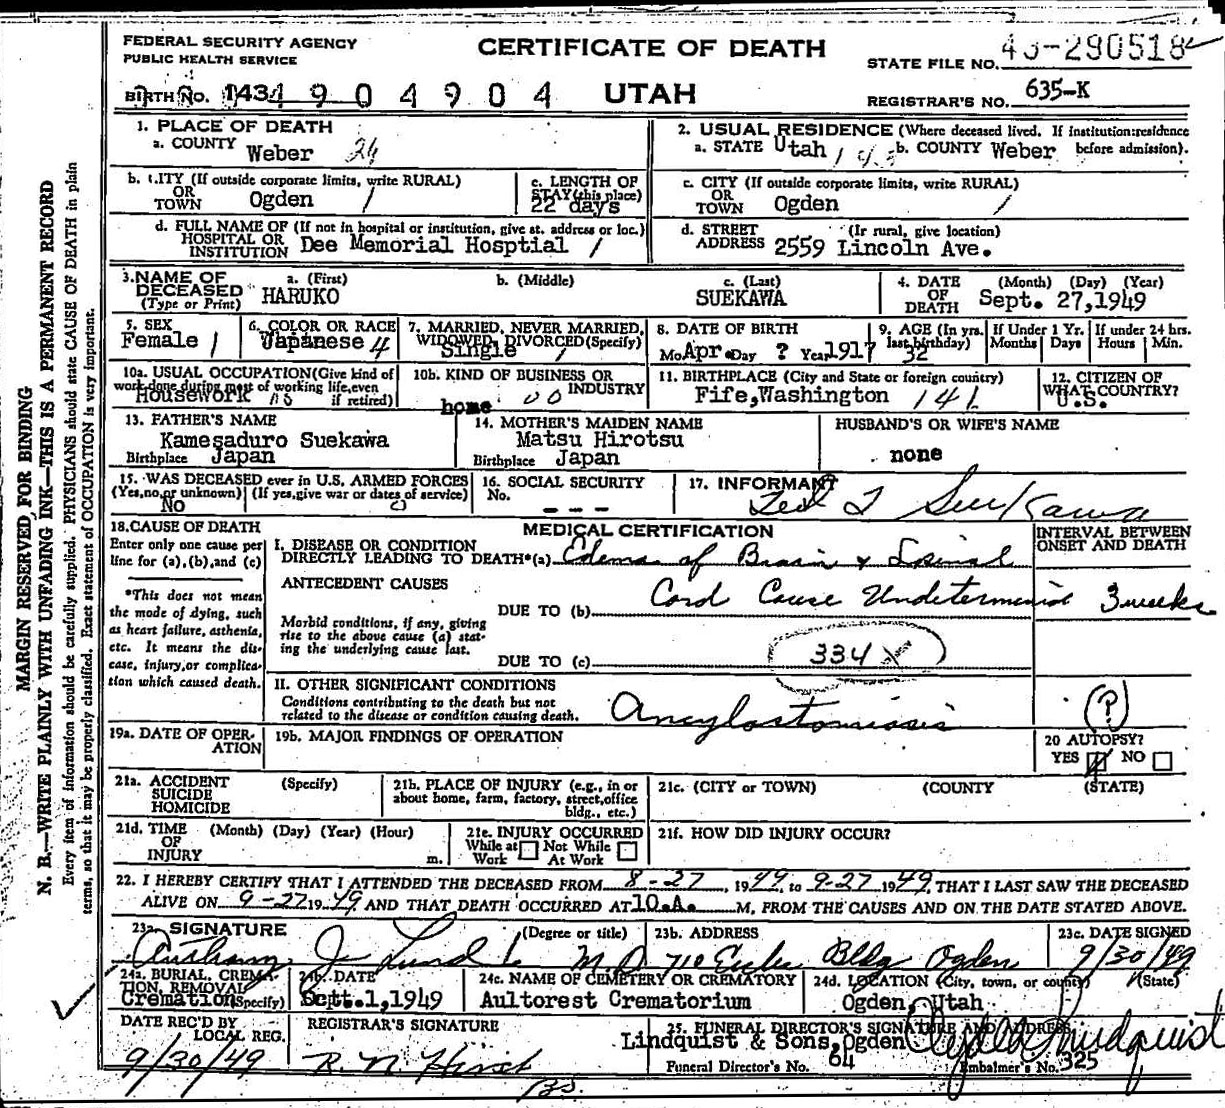 FEDERAL SECURITY AGENCY
PUBLIC HEALTH SERVICE
CERTIFICATE OF DEATH
STATE FILE NO. 49-290518
BIRTH NO. 1434 904904 UTAH
REGISTRAR'S NO. 635-K
MARGIN RESERVED FOR BINDING
N. B.—WRITE PLAINLY WITH UNFADING INK—THIS IS A PERMANENT RECORD
Every item of information should be carefully supplied. PHYSICIANS should state CAUSE OF DEATH in plain
terms, so that it may be properly classified. Exact statement of OCCUPATION is very important.
1. PLACE OF DEATH
a. COUNTY Weber
2. USUAL RESIDENCE (Where deceased lived. If institution:residence before admission).
a. STATE Utah b. COUNTY Weber
b. CITY (If outside corporate limits, write RURAL)
OR TOWN Ogden
c. LENGTH OF STAY (this place)
22 days
c. CITY (If outside corporate limits, write RURAL)
OR TOWN Ogden
d. FULL NAME OF (If not in hospital or institution, give st. address or loc.)
HOSPITAL OR INSTITUTION Dee Memorial Hosptial
d. STREET ADDRESS (If rural, give location)
2559 Lincoln Ave.
3. NAME OF DECEASED (Type or Print)
a. (First) HARUKO
b. (Middle)
c. (Last) SUEKAWA
4. DATE OF DEATH (Month) (Day) (Year)
Sept. 27,1949
5. SEX
Female 1
6. COLOR OR RACE
Japanese 4
7. MARRIED, NEVER MARRIED, WIDOWED, DIVORCED (Specify)
Single
8. DATE OF BIRTH
Mo. Apr. Day ? Year 1917
9. AGE (In yrs. last birthday)
32
If Under 1 Yr.
Months Days
If under 24 hrs.
Hours Min.
10a. USUAL OCCUPATION (Give kind of work done during most of working life, even if retired)
Housework
10b. KIND OF BUSINESS OR INDUSTRY
home
11. BIRTHPLACE (City and State or foreign country)
Fife,Washington
12. CITIZEN OF WHAT COUNTRY?
U.S.
13. FATHER'S NAME
Kamesaduro Suekawa
Birthplace Japan
14. MOTHER'S MAIDEN NAME
Matsu Hirotsu
Birthplace Japan
HUSBAND'S OR WIFE'S NAME
none
15. WAS DECEASED ever in U.S. ARMED FORCES
(Yes, no, or unknown) (If yes, give war or dates of service)
No
16. SOCIAL SECURITY No.
---
17. INFORMANT
Ted T Suekawa
18. CAUSE OF DEATH
Enter only one cause per line for (a), (b), and (c)
*This does not mean the mode of dying, such as heart failure, asthenia, etc. It means the disease, injury, or complication which caused death.
MEDICAL CERTIFICATION
INTERVAL BETWEEN ONSET AND DEATH
I. DISEASE OR CONDITION
DIRECTLY LEADING TO DEATH*(a) Edema of Brain & Spinal
ANTECEDENT CAUSES
DUE TO (b) Cord Cause Undetermined 3 weeks
Morbid conditions, if any, giving rise to the above cause (a) stating the underlying cause last.
DUE TO (c) 334X
II. OTHER SIGNIFICANT CONDITIONS
Conditions contributing to the death but not related to the disease or condition causing death.
Ancylostomiasis (?)
19a. DATE OF OPERATION
19b. MAJOR FINDINGS OF OPERATION
20 AUTOPSY?
YES NO
21a. ACCIDENT SUICIDE HOMICIDE (Specify)
21b. PLACE OF INJURY (e.g., in or about home, farm, factory, street, office bldg., etc.)
21c. (CITY or TOWN) (COUNTY (STATE)
21d. TIME OF INJURY (Month) (Day) (Year) (Hour) m.
21e. INJURY OCCURRED
While at Work Not While At Work
21f. HOW DID INJURY OCCUR?
22. I HEREBY CERTIFY THAT I ATTENDED THE DECEASED FROM 8-27, 1949, to 9-27 1949, THAT I LAST SAW THE DECEASED
ALIVE ON 9-27 1949 AND THAT DEATH OCCURRED AT 10.A. M, FROM THE CAUSES AND ON THE DATE STATED ABOVE.
23a. SIGNATURE (Degree or title)
J Lund M D
23b. ADDRESS
Bldg Ogden
23c. DATE SIGNED
9/30/49
24a. BURIAL, CREMATION, REMOVAL (Specify)
Cremation
24b. DATE
1,1949
24c. NAME OF CEMETERY OR CREMATORY
Aultorest Crematorium
24d. LOCATION (City, town, or county) (State)
Ogden, Utah
DATE REC'D BY LOCAL REG.
9/30/49
REGISTRAR'S SIGNATURE
R. N. Hirst
25. FUNERAL DIRECTOR'S SIGNATURE AND ADDRESS
Lindquist & Sons,Ogden
Funeral Director's No. 64
Embalmer's No. 325